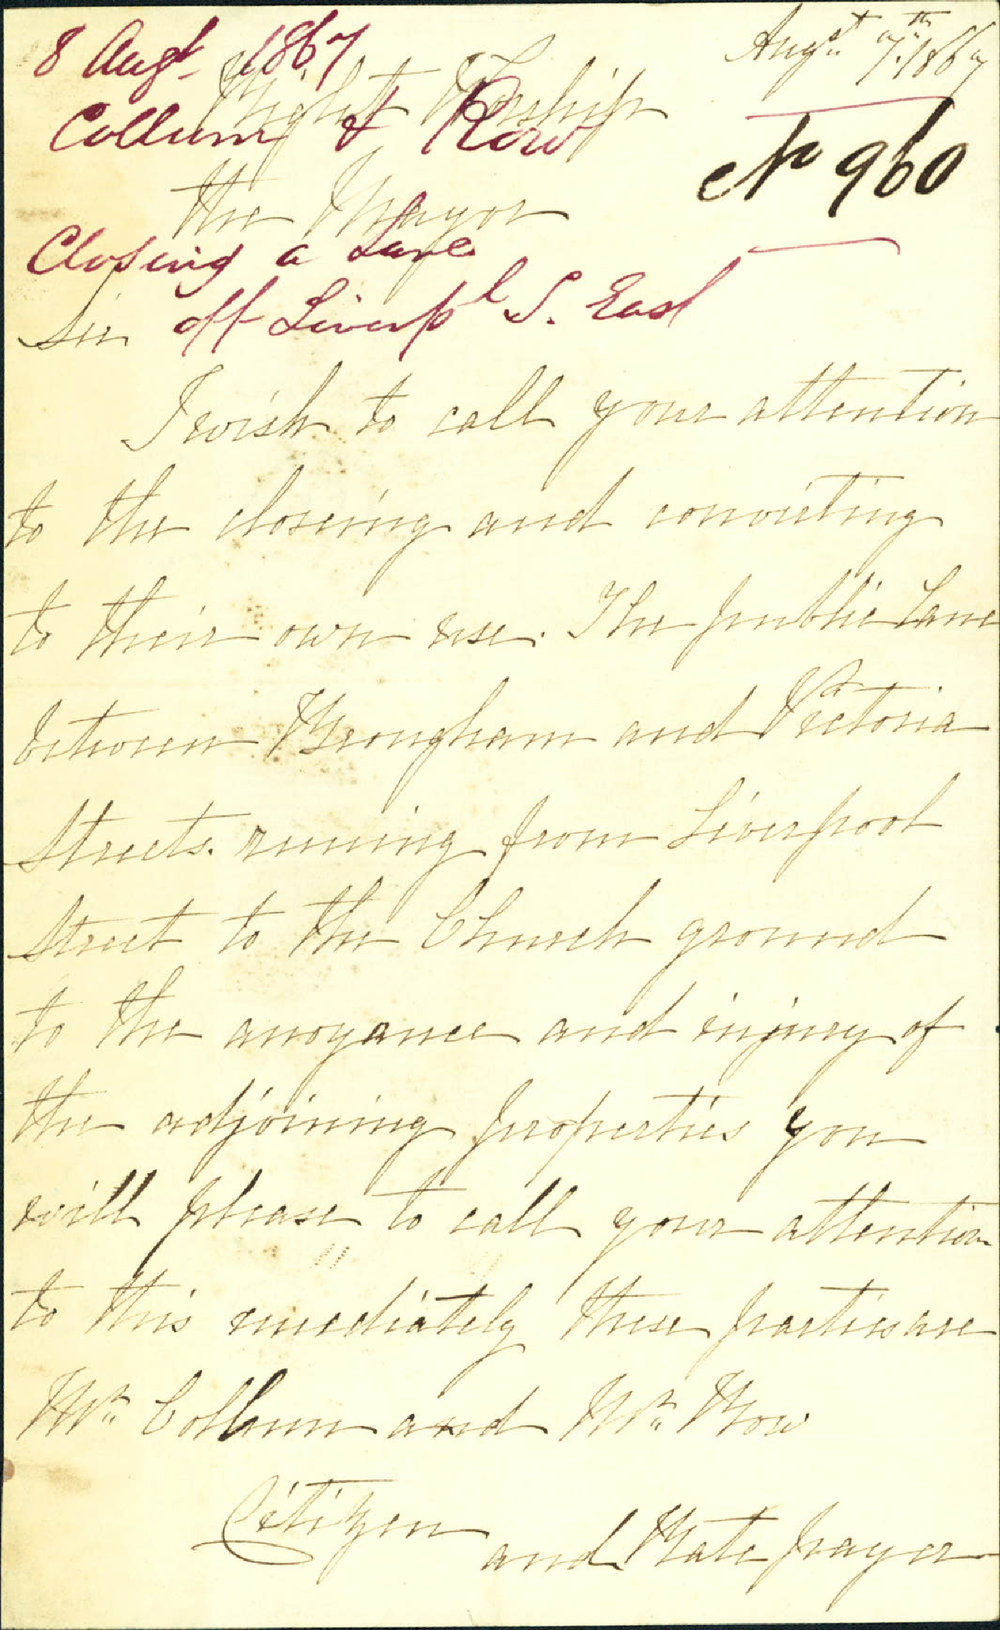 Augst 7th 1867
8 Augt 1867
Right Worship
Collum & Row
No 960
the Mayor
Closing a Lane
Sir
off Liverpl S. East
I wish to call your attention
to the closeing and conveting
to their own use. The public Lane
between Brougham and Victoria
Streets. running from Liverpool
Street to the Church ground
to the anoyance and injury of
the adjoining properties you
will please to call your attention
to this imediately these parties are
Mr. Collum and Mr. Row
Citizen
and Rate prayer